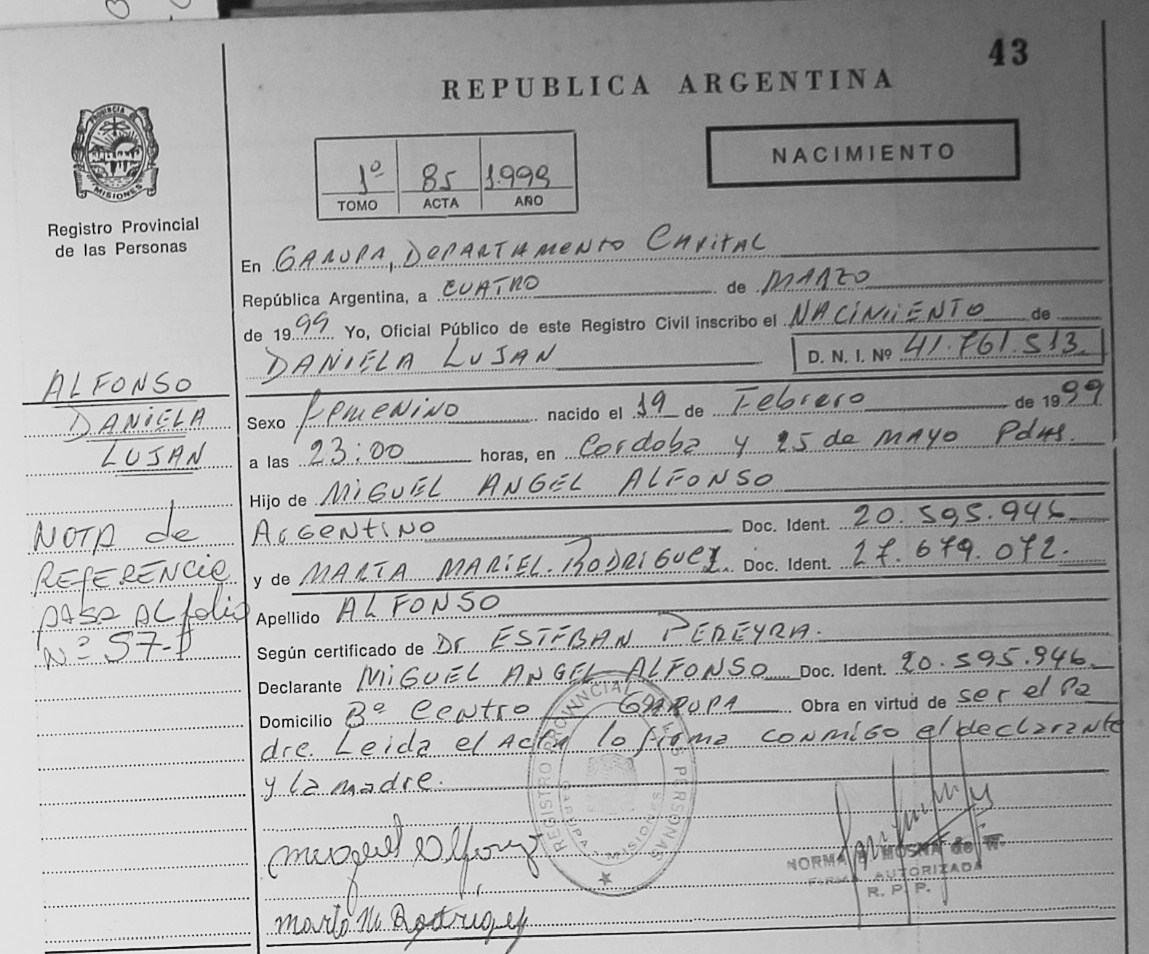 43
REPUBLICA ARGENTINA
PROVINCIA DE
MISIONES
Registro Provincial
de las Personas
1º 85 1.999
TOMO ACTA AÑO
NACIMIENTO
En GARUPA, DEPARTAMENTO CAPITAL
República Argentina, a CUATRO de MARZO
de 1999 Yo, Oficial Público de este Registro Civil inscribo el NACIMIENTO de
DANIELA LUJAN D. N. I. Nº 41.761.513
ALFONSO
DANIELA
LUJAN
Sexo Femenino nacido el 19 de Febrero de 1999
a las 23.00 horas, en Cordoba y 25 de MAYO Pdas.
Hijo de MIGUEL ANGEL ALFONSO
ARGENTINO Doc. Ident. 20.595.946
y de MARTA MARIEL RODRIGUEZ. Doc. Ident. 27.679.072.
Apellido ALFONSO
Según certificado de Dr ESTEBAN PEREYRA.
Declarante MIGUEL ANGEL ALFONSO Doc. Ident. 20.595.946
Domicilio Bº Centro GARUPA Obra en virtud de ser el Pa
dre. Leida el Acta lo firma conmigo el declarante
y la madre.
NOTA de
REFERENCIA
PASA AL folio
Nº 57-
REGISTRO PROVINCIAL DE LAS PERSONAS
GARUPA - MISIONES
Miguel Alfonzo
Marta M. Rodriguez
NORMA MOSNA de
FIRMA AUTORIZADA
R. P. P.